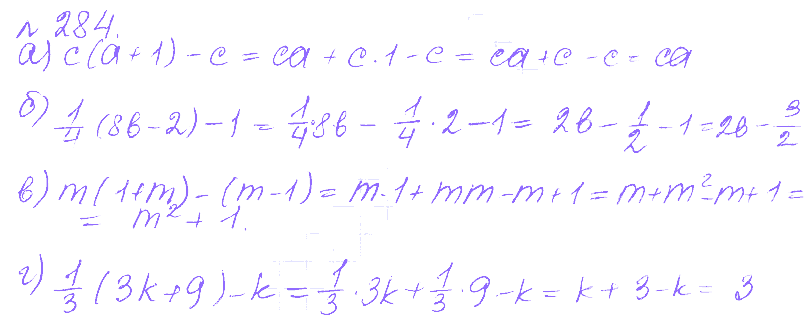 № 284.
а) c(a+1) - c = ca + c·1 - c = ca + c - c = ca
б) 1/4 (8b - 2) - 1 = 1/4·8b - 1/4·2 - 1 = 2b - 1/2 - 1 = 2b - 3/2
в) m(1+m) - (m-1) = m·1 + mm - m + 1 = m + m² - m + 1 =
= m² + 1.
г) 1/3 (3k+9) - k = 1/3·3k + 1/3·9 - k = k + 3 - k = 3